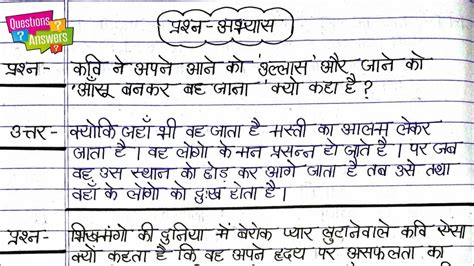 Questions
Answers
प्रश्न-अभ्यास
प्रश्न- कवि ने अपने आने को 'उल्लास' और जाने को
'आँसू बनकर बह जाना' क्यों कहा है?
उत्तर- क्योंकि जहाँ भी वह जाता है मस्ती का आलम लेकर
जाता है। वह लोगो के मन प्रसन्न हो जाते है। पर जब
वह उस स्थान को छोड़ कर आगे जाता है तब उसे तथा
वहाँ के लोगो को दुःख होता है।
प्रश्न- भिखमंगो की दुनिया में बेरोक प्यार लुटानेवाले कवि ऐसा
क्यों कहता है कि वह अपने हृदय पर असफलता का